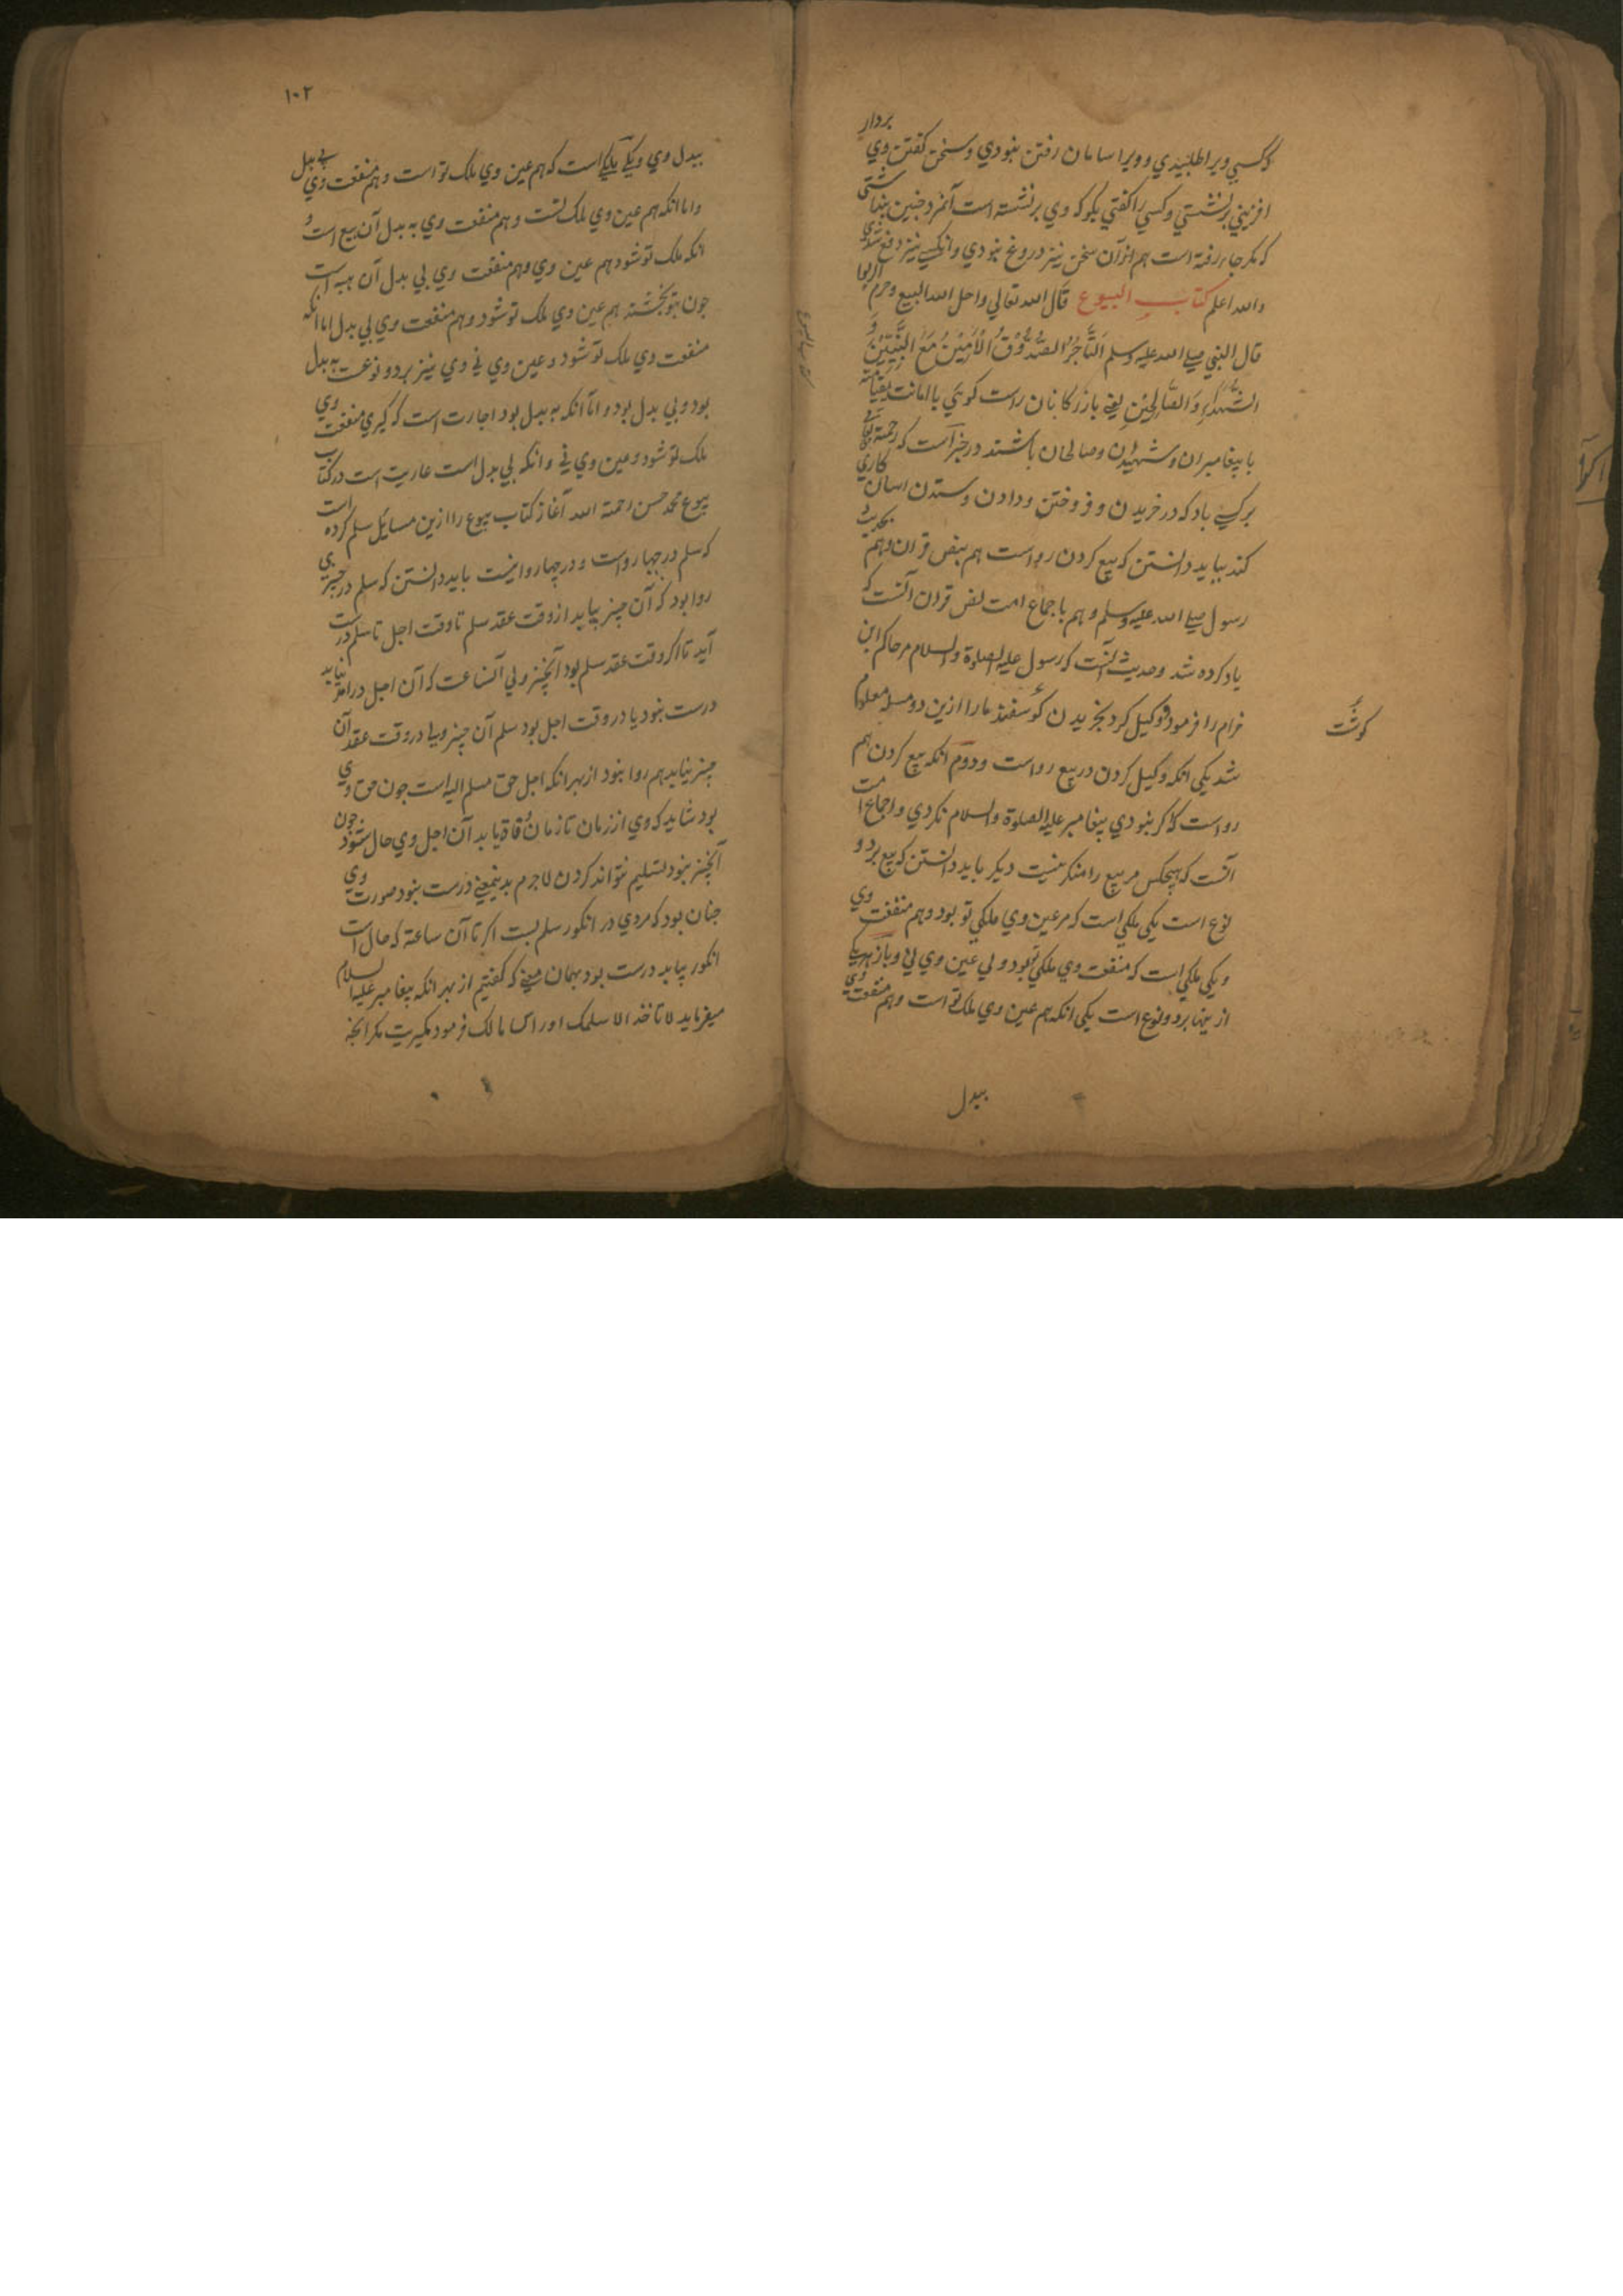 وکسي ويرا طلبيدي و ويرا سامان رفتن نبودي وسخن کفتن وي بردار
افزيني برنشستي وکسي را کفتي بکو که وي برنشسته است آنمرد چنين بنداشتي
که مکر جاء رفته است هم ازآن سخن نيز دروغ نبودي وانکس نيز دفع شدي
والله اعلم کتاب البيوع قال الله تعالي واحل الله البيع وحرم الربوا
قال النبي صلي الله عليه وسلم اَلتَّاجِرُ الصَّدُوْقُ الْاَمِيْنُ مَعَ النَّبِيِّيْنَ وَ
الشُّهَدَاءِ وَالصَّالِحِيْنَ يعني بازرکانان راست کوي باامانت بقيامت
با پيغامبران وشهيدان وصالحان باشند در خبر است که رحمت خداي
برکسي باد که در خريدن و فروختن ودادن وستدن آسان کاري
کند ببايد دانستن که بيع کردن رواست هم بنص قرآن وهم بحديث
رسول صلي الله عليه وسلم وهم باجماع امت نص قرآن آنست که
ياد کرده شد وحديث آنست که رسول عليه الصلوة والسلام مرحاکم ابن
حزام را فرمود ووکيل کرد بخريدن کوسفند مارا ازين دو مسله معلوم
شد يکي انکه وکيل کردن دربيع رواست ودوم انکه بيع کردن هم
رواست که اکر نبودي پيغامبر عليه الصلوة والسلام نکردي واجماع امت
آنست که هيچکس مربيع را منکر نيست ديکر بايد دانستن که بيع بردو
نوع است يکي ملکي است که مرعين وي ملکي تو بود وهم منفعت وي
ويکي ملکي است که منفعت وي ملکي تو بود ولي عين وي ني وباز هريکي
از ينها بردو نوع است يکي انکه هم عين وي ملک تو است وهم منفعت وي
ببدل
کوشت
کتاب البيوع
١٠٢
ببدل وي ويکي ملکي است که هم عين وي ملک تو است وهم منفعت وي بي بدل
واما انکه هم عين وي ملک تست وهم منفعت وي به بدل آن بيع است و
انکه ملک تو شود هم عين وي وهم منفعت وي بي بدل آن هبه است
چون بتو بخشند هم عين وي ملک تو شود وهم منفعت وي بي بدل اما انکه
منفعت وي ملک تو شود وعين وي ني وي نيز بردو نوعست به بدل
بود وبي بدل بود واما آنکه به بدل بود اجارت است که کيري منفعت وي
ملک تو شود وعين وي ني وانکه بي بدل است عاريت است درکتاب
بيوع محمد حسن رحمة الله آغاز کتاب بيوع را ازين مسائل سلم کرده است
که سلم در چها رواست و در چها روا نيست بايد دانستن که سلم در چيزي
روا بود که آن چيز بيابد از وقت عقد سلم تا وقت اجل تا سلم درست
آيد تا اکر وقت عقد سلم بود آنچيز ولي آنساعت که آن اجل درآمد نيابد
درست نبود يا در وقت اجل بود سلم آن چيز وليا دروقت عقد آن
چيز نيابد هم روا نبود از بهر انکه اجل حق مسلم اليه است چون حق وي
بود شايد که وي از زمان تا زمان وفاة يابد آن اجل وي حال شود چون
آنچيز نبود تسليم نتواند کردن لاجرم بدينمعني درست نبود صورت وي
چنان بود که مردي در انکور سلم بست اکر تا آن ساعة که حال است
انکور يابد درست بود بهمان معني که کفتيم از بهر انکه پيغامبر عليه السلام
ميفرمايد لا تاخذ الا سلمک اوراس مالک فرمود مکيريت مکر آنچه